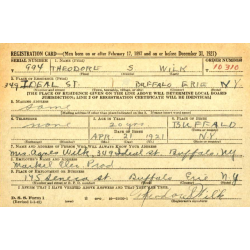 REGISTRATION CARD—(Men born on or after February 17, 1897 and on or before December 31, 1921)
SERIAL NUMBER 1. NAME (Print) ORDER NUMBER
THEODORE S WILK 10310
2. PLACE OF RESIDENCE (Print)
349 IDEAL ST. BUFFALO ERIE N.Y.
[THE PLACE OF RESIDENCE GIVEN ON LINE 2 ABOVE WILL DETERMINE LOCAL BOARD
JURISDICTION; LINE 2 OF REGISTRATION CERTIFICATE WILL BE IDENTICAL]
3. MAILING ADDRESS
Same
4. TELEPHONE 5. AGE IN YEARS 6. PLACE OF BIRTH
none 20 yrs BUFFALO
DATE OF BIRTH
APR 21 1921 N.Y.
7. NAME AND ADDRESS OF PERSON WHO WILL ALWAYS KNOW YOUR ADDRESS
Mrs Agnes Wilk, 349 Ideal St. Buffalo, N.Y.
8. EMPLOYER'S NAME AND ADDRESS
Prod
9. PLACE OF EMPLOYMENT OR BUSINESS
145 Seneca St Buffalo Erie N.Y.
I AFFIRM THAT I HAVE VERIFIED ABOVE ANSWERS AND THAT THEY ARE TRUE.
D. S. S. Form 1